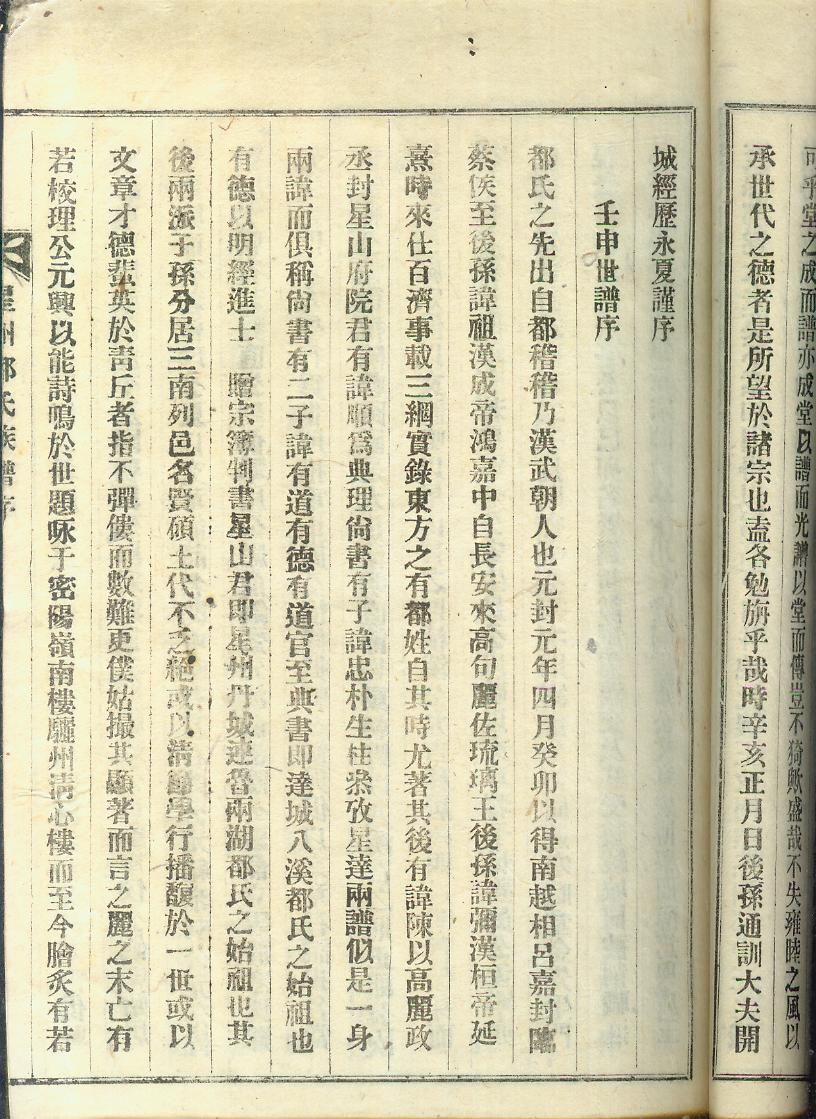 可乎堂之成而譜亦成堂以譜而光譜以堂而傳豈不猗歟盛哉不失雍睦之風以
承世代之德者是所望於諸宗也盍各勉旃乎哉時辛亥正月日後孫通訓大夫開
城經歷永夏謹序
壬申世譜序
都氏之先出自都稽稽乃漢武朝人也元封元年四月癸卯以得南越相呂嘉封臨
蔡侯至後孫諱祖漢成帝鴻嘉中自長安來高句麗佐琉璃王後孫諱彌漢桓帝延
熹時來仕百濟事載三綱實錄東方之有都姓自其時尤著其後有諱陳以高麗政
丞封星山府院君有諱順爲典理尙書有子諱忠朴生桂烝攷星達兩譜似是一身
兩諱而俱稱尙書有二子諱有道有德有道官至典書即達城八溪都氏之始祖也
有德以明經進士 贈宗簿判書星山君即星州丹城達晉兩湖都氏之始祖也其
後兩派子孫分居三南列邑名賢碩士代不乏絕或以淸節學行播馥於一世或以
文章才德蜚英於靑丘者指不彈僂而數難更僕姑撮其顯著而言之麗之末亡有
若校理公元興以能詩鳴於世題咏于密陽嶺南樓驪州淸心樓而至今膾炙有若
星州都氏族譜序